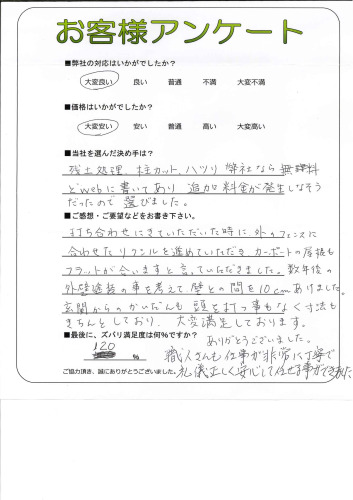 お客様アンケート
■弊社の対応はいかがでしたか?
大変良い 良い 普通 不満 大変不満
■価格はいかがですか?
大変安い 安い 普通 高い 大変高い
■当社を選んだ決め手は?
残土処理、柱カット、ハツリ 弊社なら無料
とwebに書いてあり 追加料金が発生しなそう
だったので選びました。
■ご感想・ご要望などをお書き下さい。
打ち合わせにきていただいた時に、外のフェンスに
合わせたリクシルを進めていただき、カーポートの屋根も
フラットが合いますと言っていただきました。数年後の
外壁塗装の事を考えて壁との間を10cmあけました。
玄関からのかいだんも頭を打つ事もなく寸法も
きちんとしており、大変満足しております。
ありがとうございました。
■最後に、ズバリ満足度は何%ですか?
120 %
職人さんも仕事が非常に丁寧で
礼儀正しく安心して任せる事ができました
ご協力頂き、誠にありがとうございました。